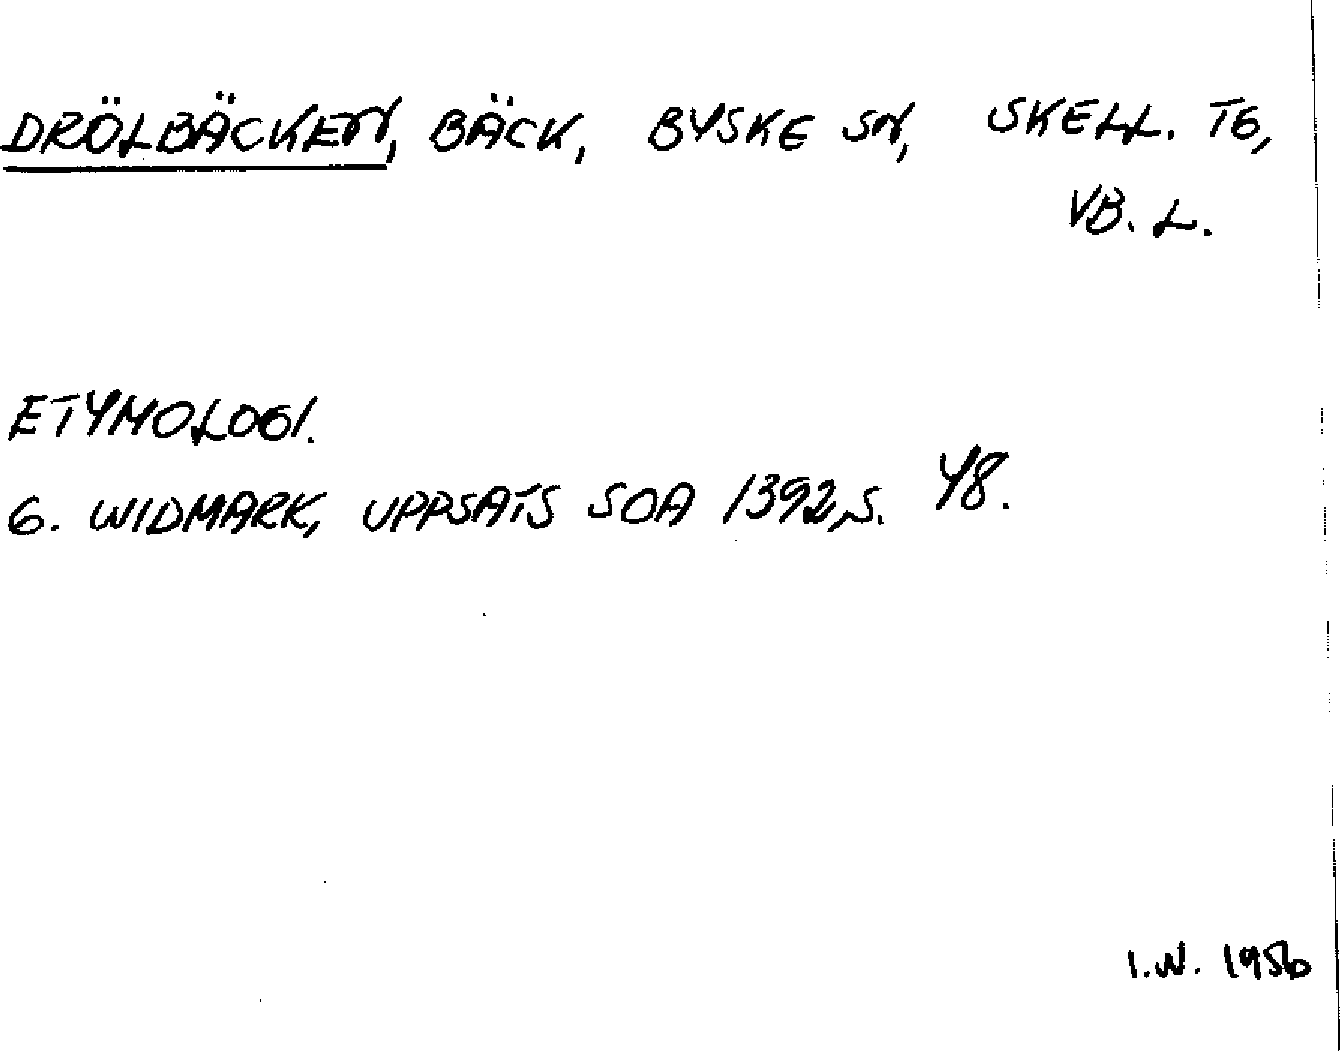 DRÖLBÄCKEN, BÄCK, BYSKE SN, SKELL. TG,
VB. L.
ETYMOLOGI.
G. WIDMARK, UPPSATS SOA 1392, S. 48.
I.W. 1956